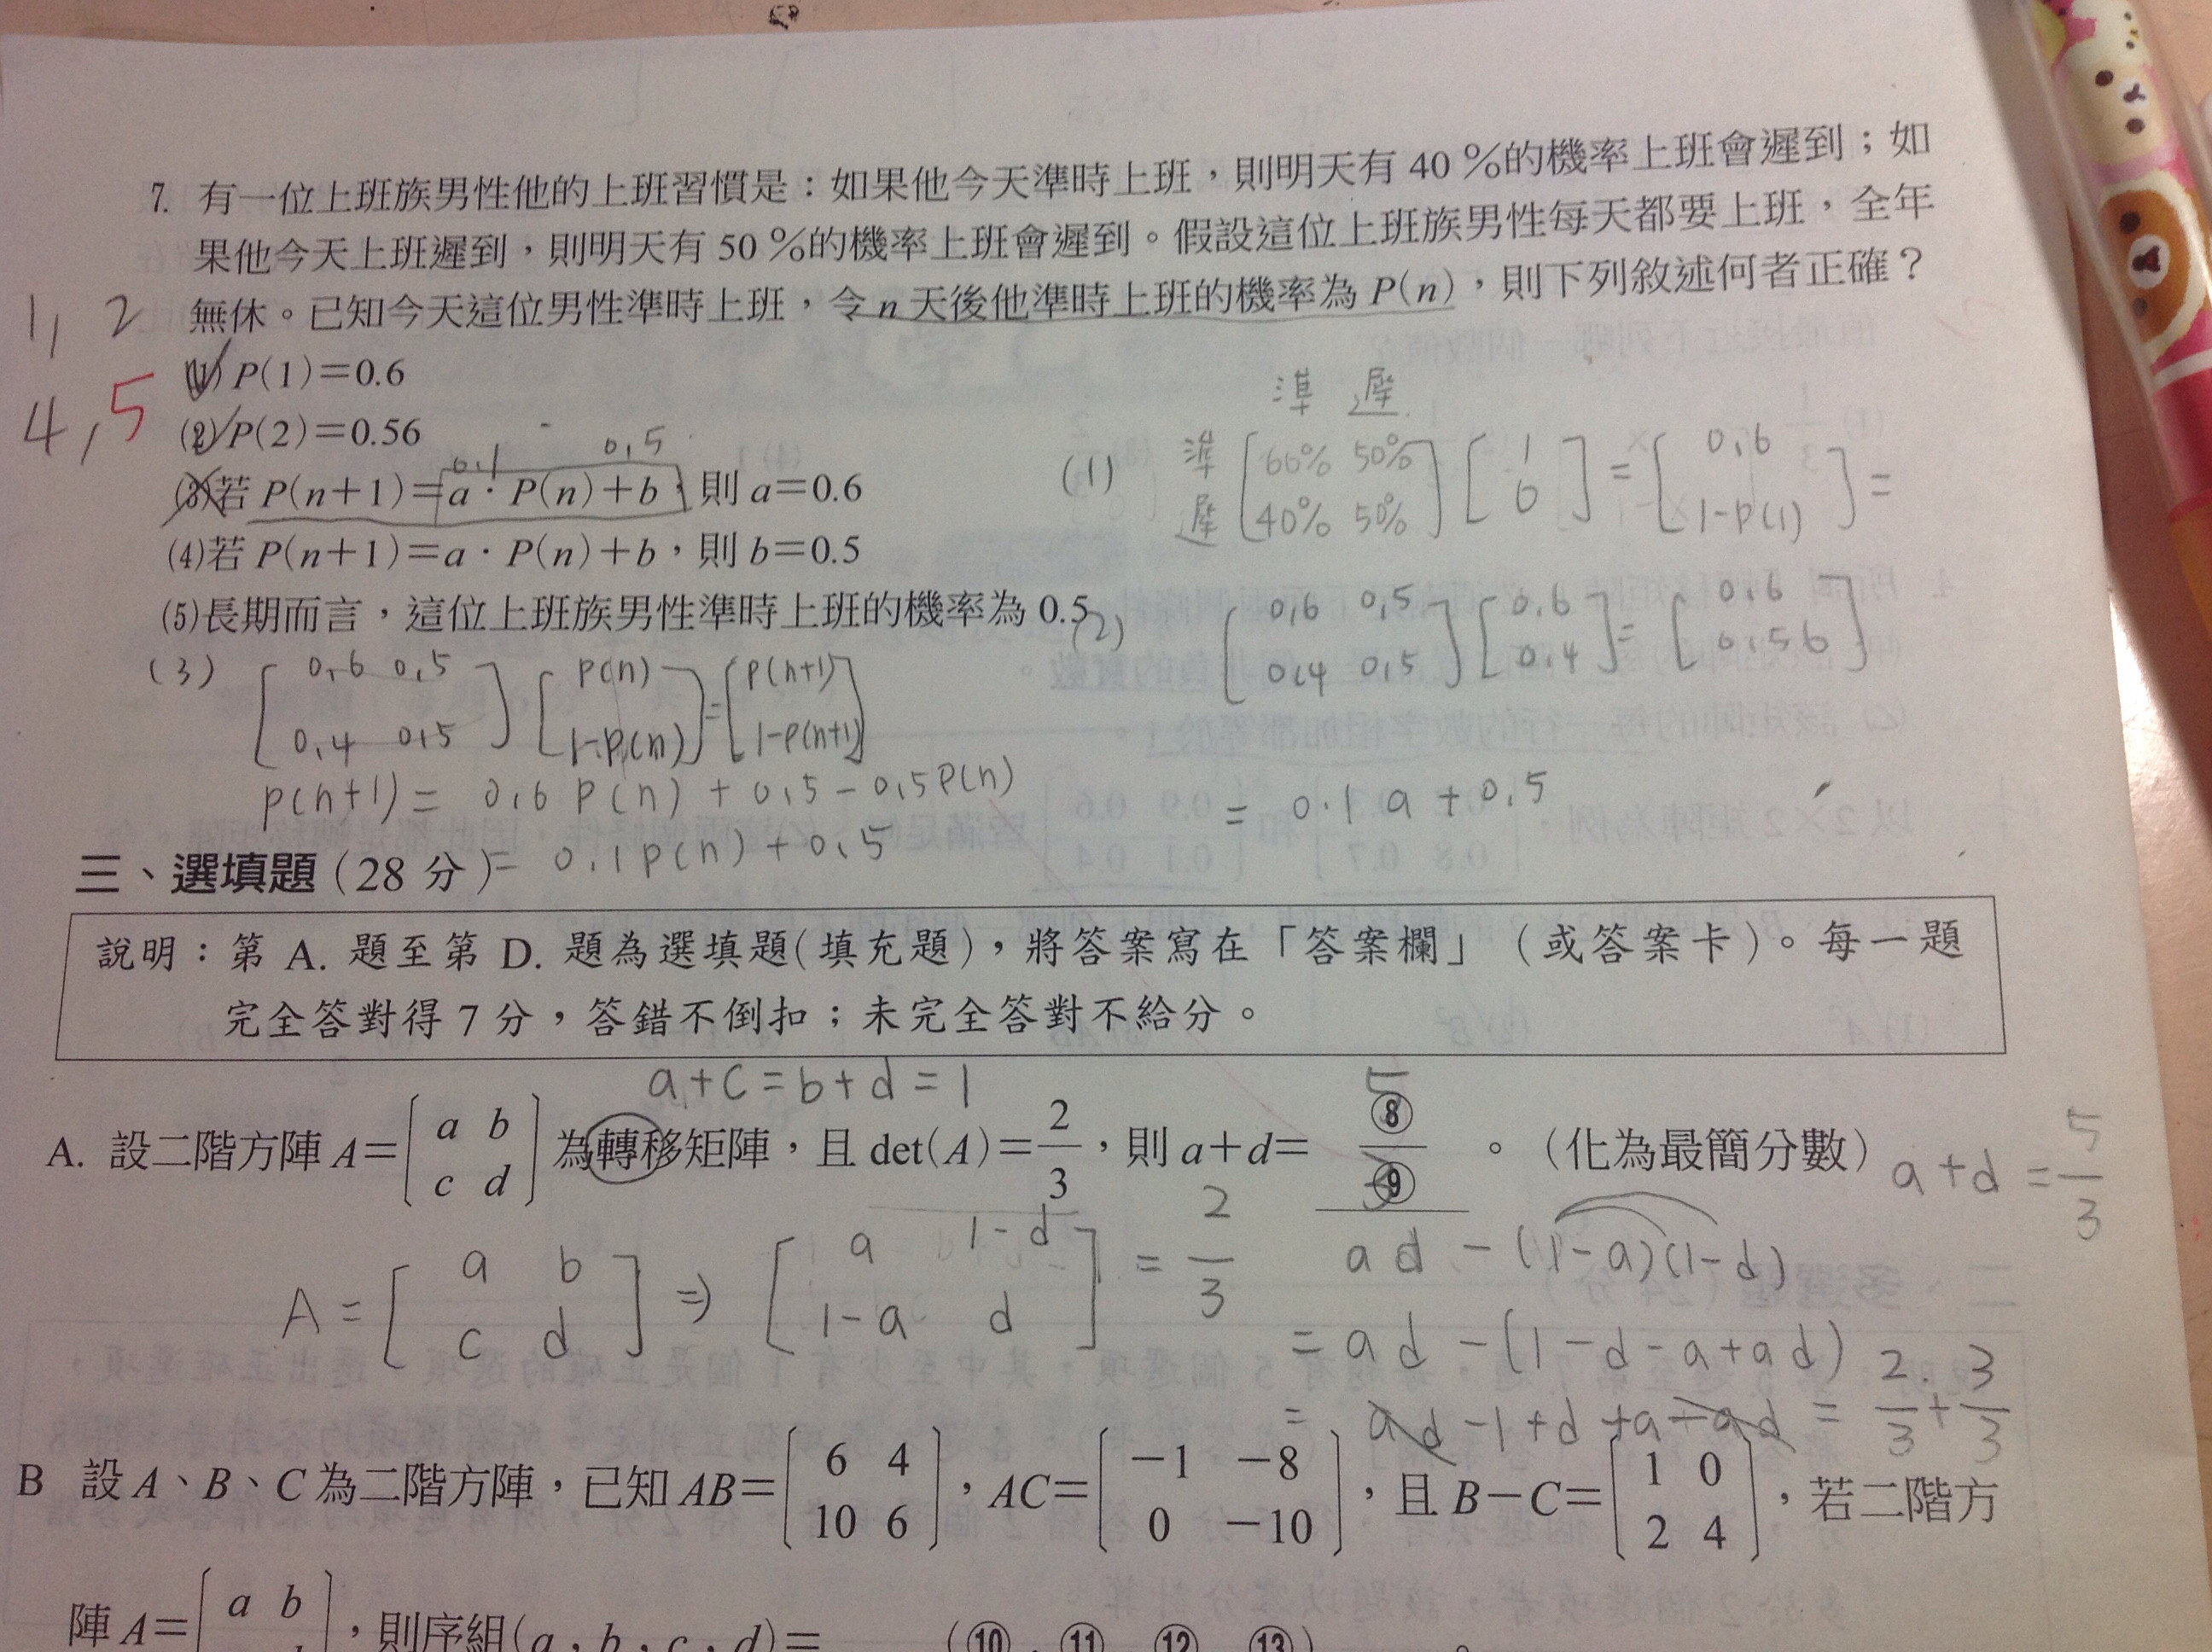 7. 有一位上班族男性他的上班習慣是：如果他今天準時上班，則明天有 40 %的機率上班會遲到；如
果他今天上班遲到，則明天有 50 %的機率上班會遲到。假設這位上班族男性每天都要上班，全年
無休。已知今天這位男性準時上班，令 n 天後他準時上班的機率為 P(n)，則下列敘述何者正確？
1, 2
4, 5
(1) P(1)=0.6
(2) P(2)=0.56
0.1 0.5
(3)若 P(n+1)=a · P(n)+b，則 a=0.6
(4)若 P(n+1)=a · P(n)+b，則 b=0.5
(5)長期而言，這位上班族男性準時上班的機率為 0.5
準 遲
(1) 準 [66% 50%] [1] = [0.6] =
遲 [40% 50%] [0] [1-P(1)]
(2) [0.6 0.5] [0.6] = [0.6]
[0.4 0.5] [0.4] [0.56]
(3) [0.6 0.5] [P(n)] = [P(n+1)]
[0.4 0.5] [1-P(n)] [1-P(n+1)]
P(n+1) = 0.6 P(n) + 0.5 - 0.5P(n)
= 0.1P(n) + 0.5
= 0.1 a + 0.5
三、選填題 (28 分)
說明：第 A. 題至第 D. 題為選填題(填充題)，將答案寫在「答案欄」(或答案卡)。每一題
完全答對得 7 分，答錯不倒扣；未完全答對不給分。
a+c=b+d=1
A. 設二階方陣 A=[a b; c d] 為轉移矩陣，且 det(A)=2/3，則 a+d= ⑧/⑨ 。(化為最簡分數)
5
3
a+d = 5/3
A = [a b; c d] ⇒ [a 1-d; 1-a d] = 2/3
ad - (1-a)(1-d)
= ad - (1-d-a+ad)
= ad -1+d+a-ad = 2/3 + 3/3
B 設 A、B、C 為二階方陣，已知 AB=[6 4; 10 6]，AC=[-1 -8; 0 -10]，且 B-C=[1 0; 2 4]，若二階方
陣 A=[a b; d]，則序組(a, b, c, d)= (⑩, ⑪, ⑫, ⑬) 。